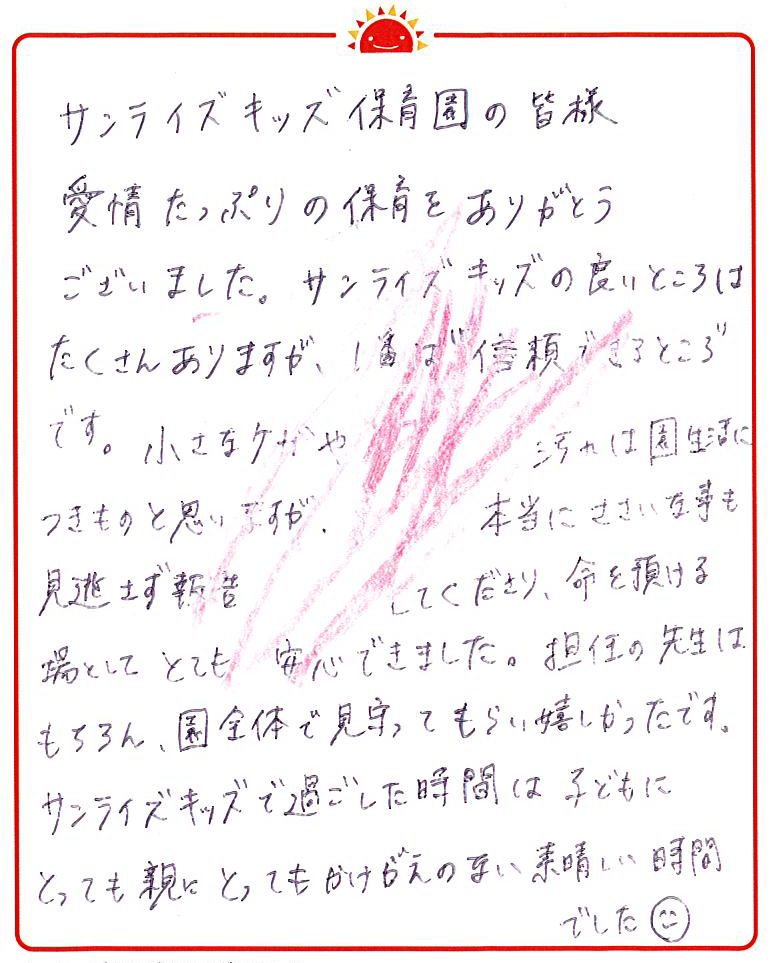 サンライズキッズ保育園の皆様
愛情たっぷりの保育をありがとう
ございました。サンライズキッズの良いところは
たくさんありますが、1番は"信頼できるところ"
です。小さなケガや汚れは園生活に
つきものと思いますが、本当にささいな事も
見逃さず報告してくださり、命を預ける
場としてとても安心できました。担任の先生は
もちろん、園全体で見守ってもらい嬉しかったです。
サンライズキッズで過ごした時間は子どもに
とっても親にとってもかけがえのない素晴しい時間
でした